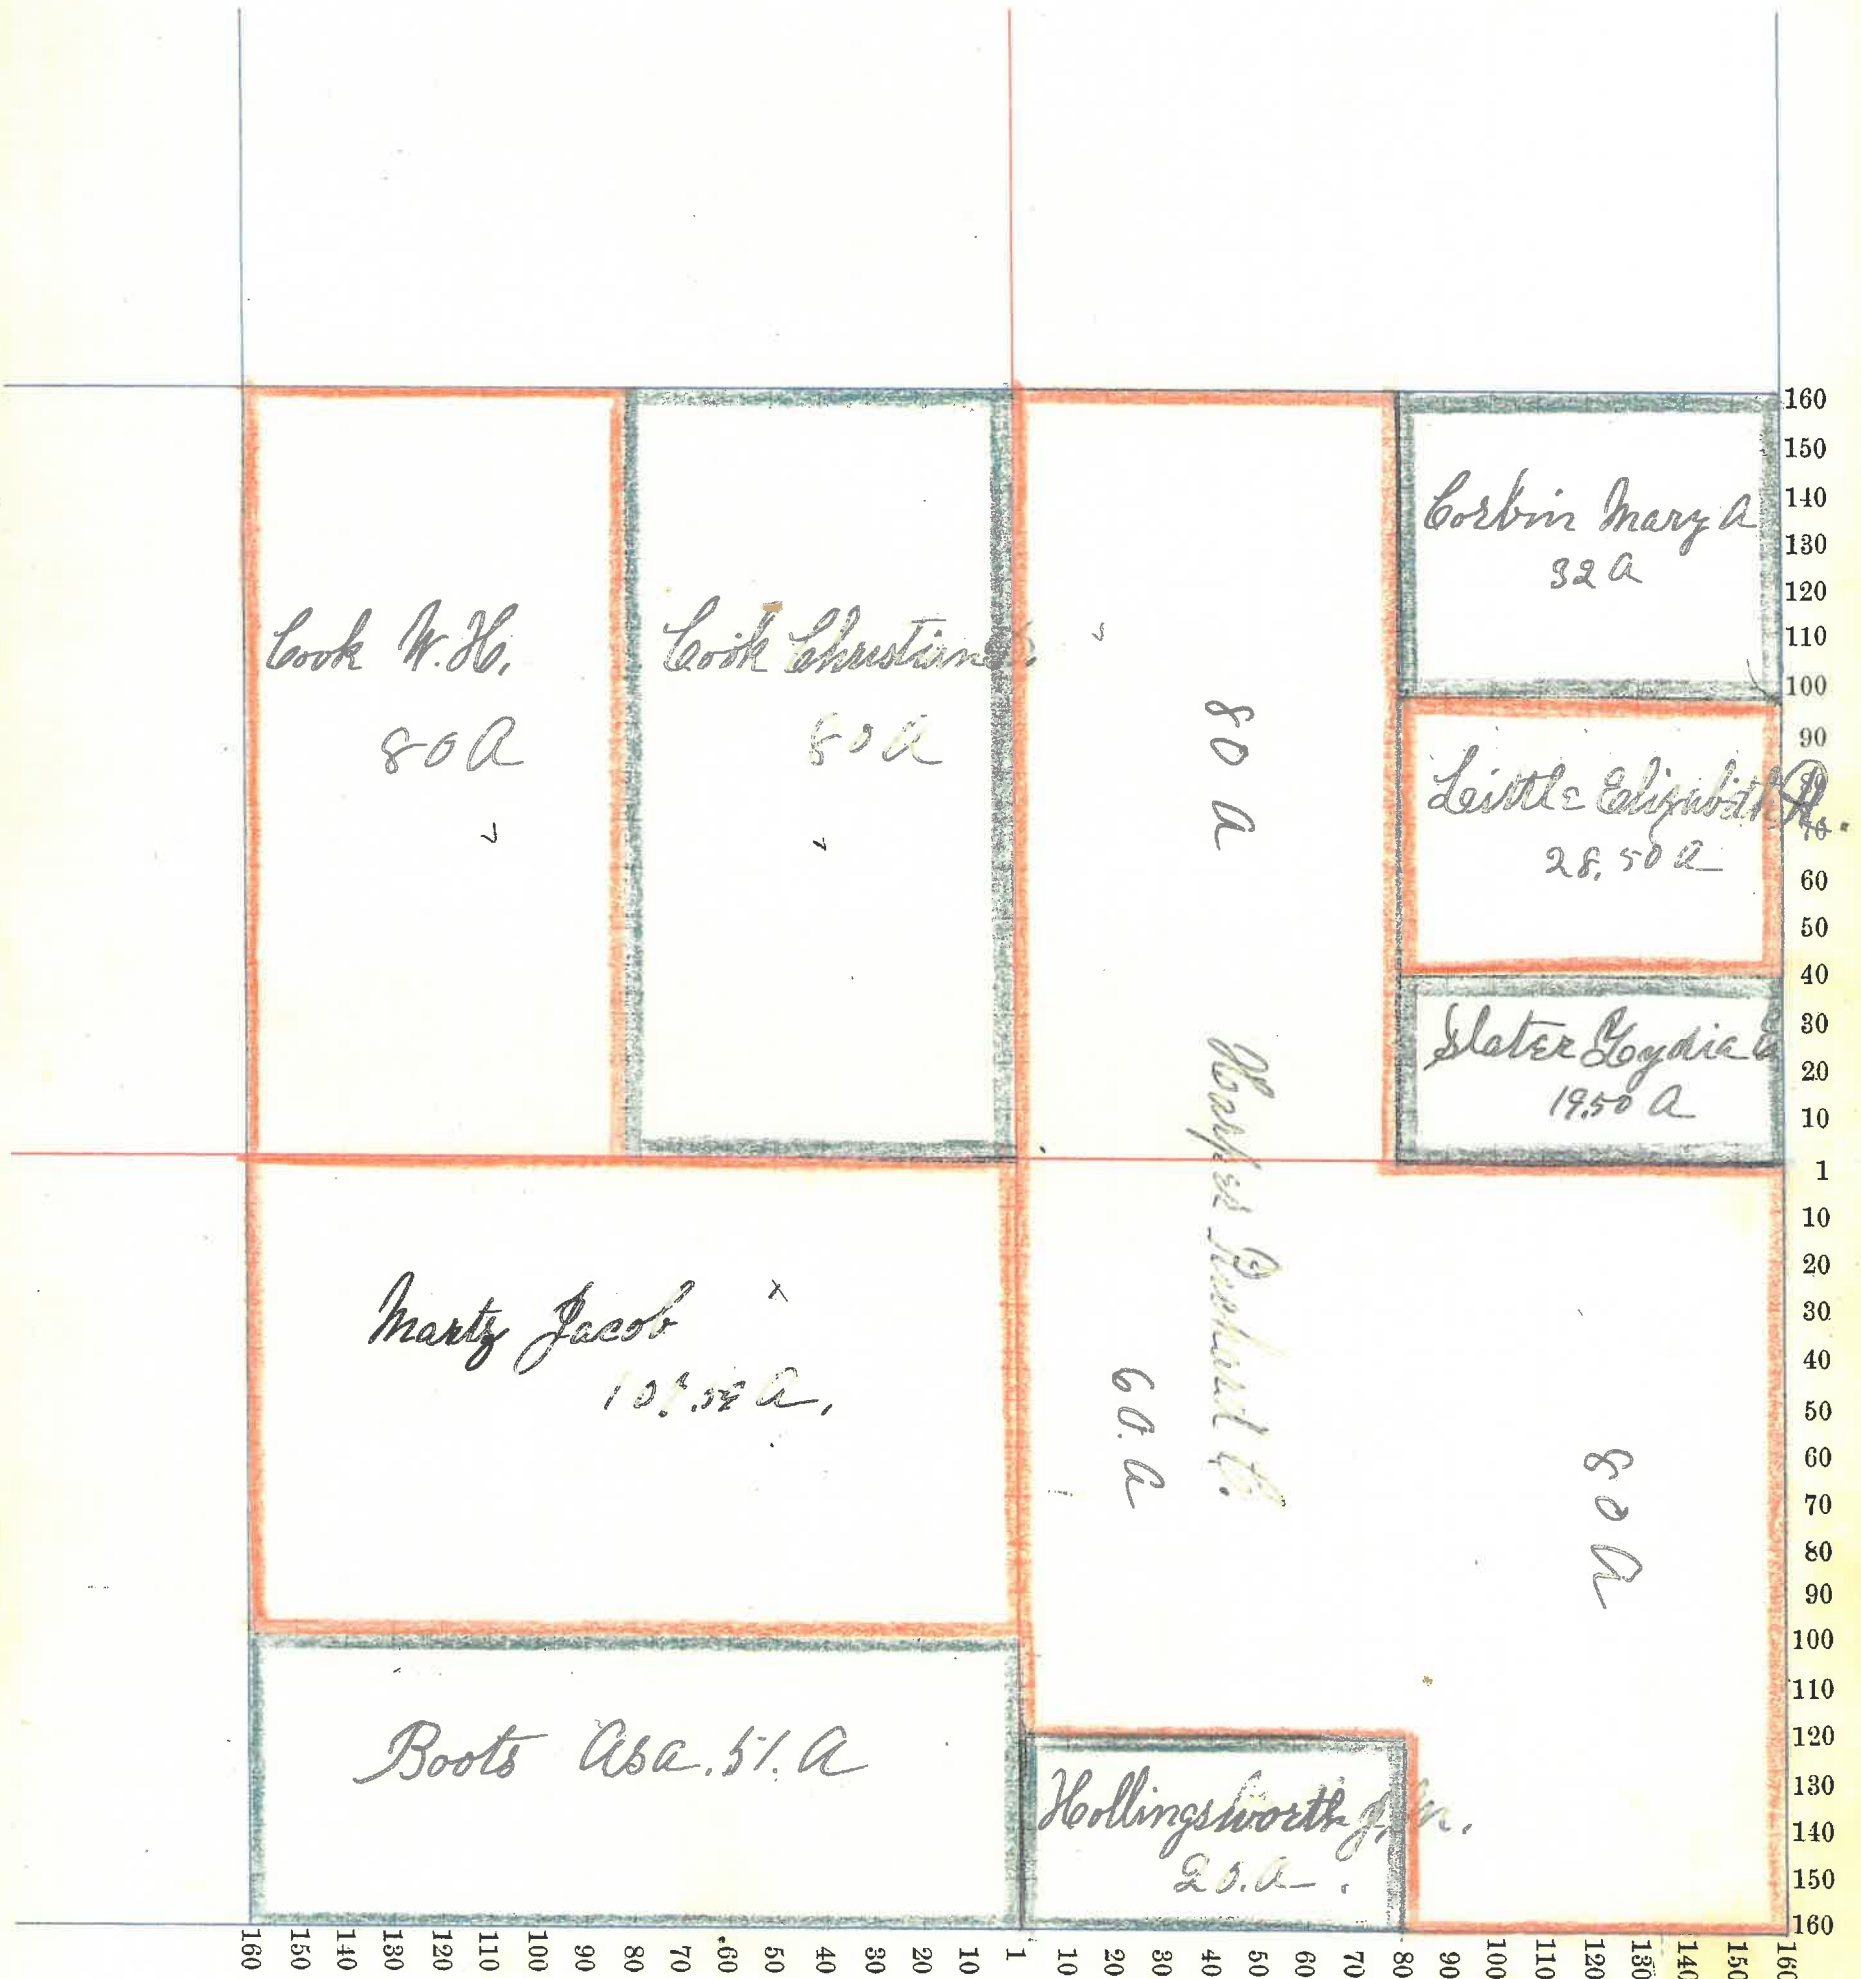 Cook W. H.
80 A
Cook Christian
80 A
80 A
Corbin Mary A
32 A
Little Elizabeth R.
28.50 A
Slater Lydia E
19.50 A
Martz Jacob
A.
Boots Asa. 51. A
60. A
80 A
Hollingsworth
20. A.
160
150
140
130
120
110
100
90
60
50
40
30
20
10
1
10
20
30
40
50
60
70
80
90
100
110
120
130
140
150
160
160 150 140 130 120 110 100 90 80 70 60 50 40 30 20 10 1 10 20 30 40 50 60 70 80 90 100 110 120 130 140 150 160